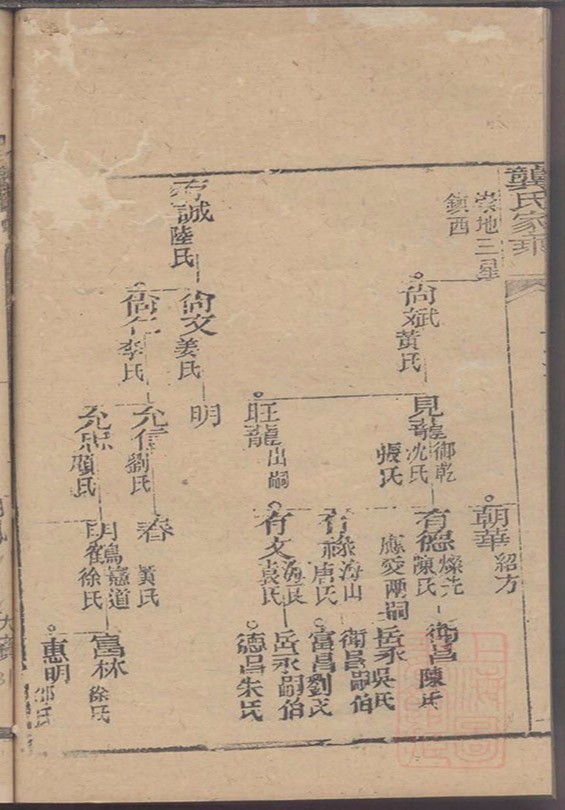 龔氏家乘
崇地三星
鎮西
尚斌黃氏
誠陸氏
尚文姜氏
尚仁李氏
見龍御乾
沈氏
張氏
旺龍出嗣
明
允信劉氏
允忠顧氏
朝華紹方
有德燦先
陳氏
應爻兩嗣
有祿海山
唐氏
有文海辰
袁氏
春黃氏
鶴嘉道
徐氏
衛昌陳氏
岳永吳氏
衛昌嗣伯
富昌劉氏
岳永嗣伯
德昌朱氏
富林徐氏
惠明